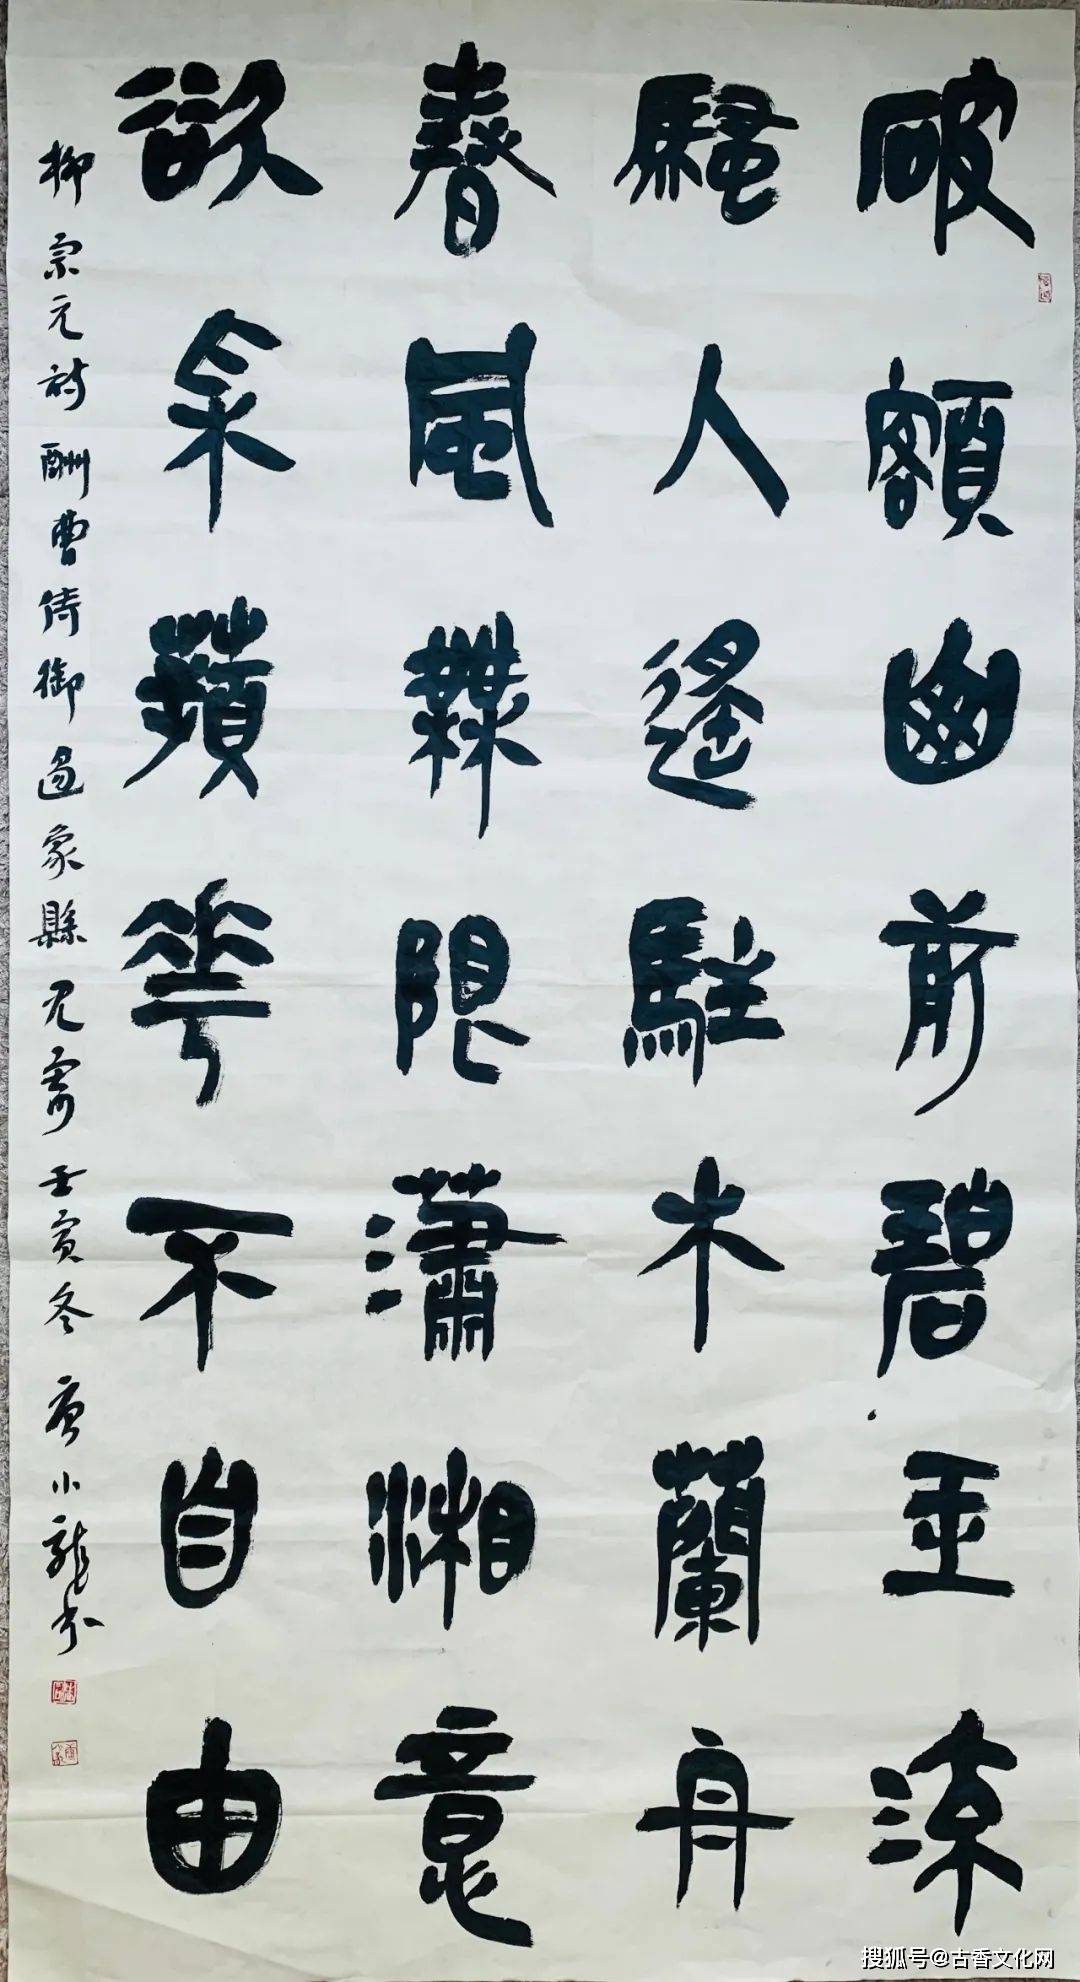 破額幽前碧玉流
騷人遙駐木蘭舟
春風無限瀟湘意
欲采蘋花不自由
柳宗元詩酬曹侍御過象縣見寄壬寅冬唐小龍书
搜狐号@古香文化网